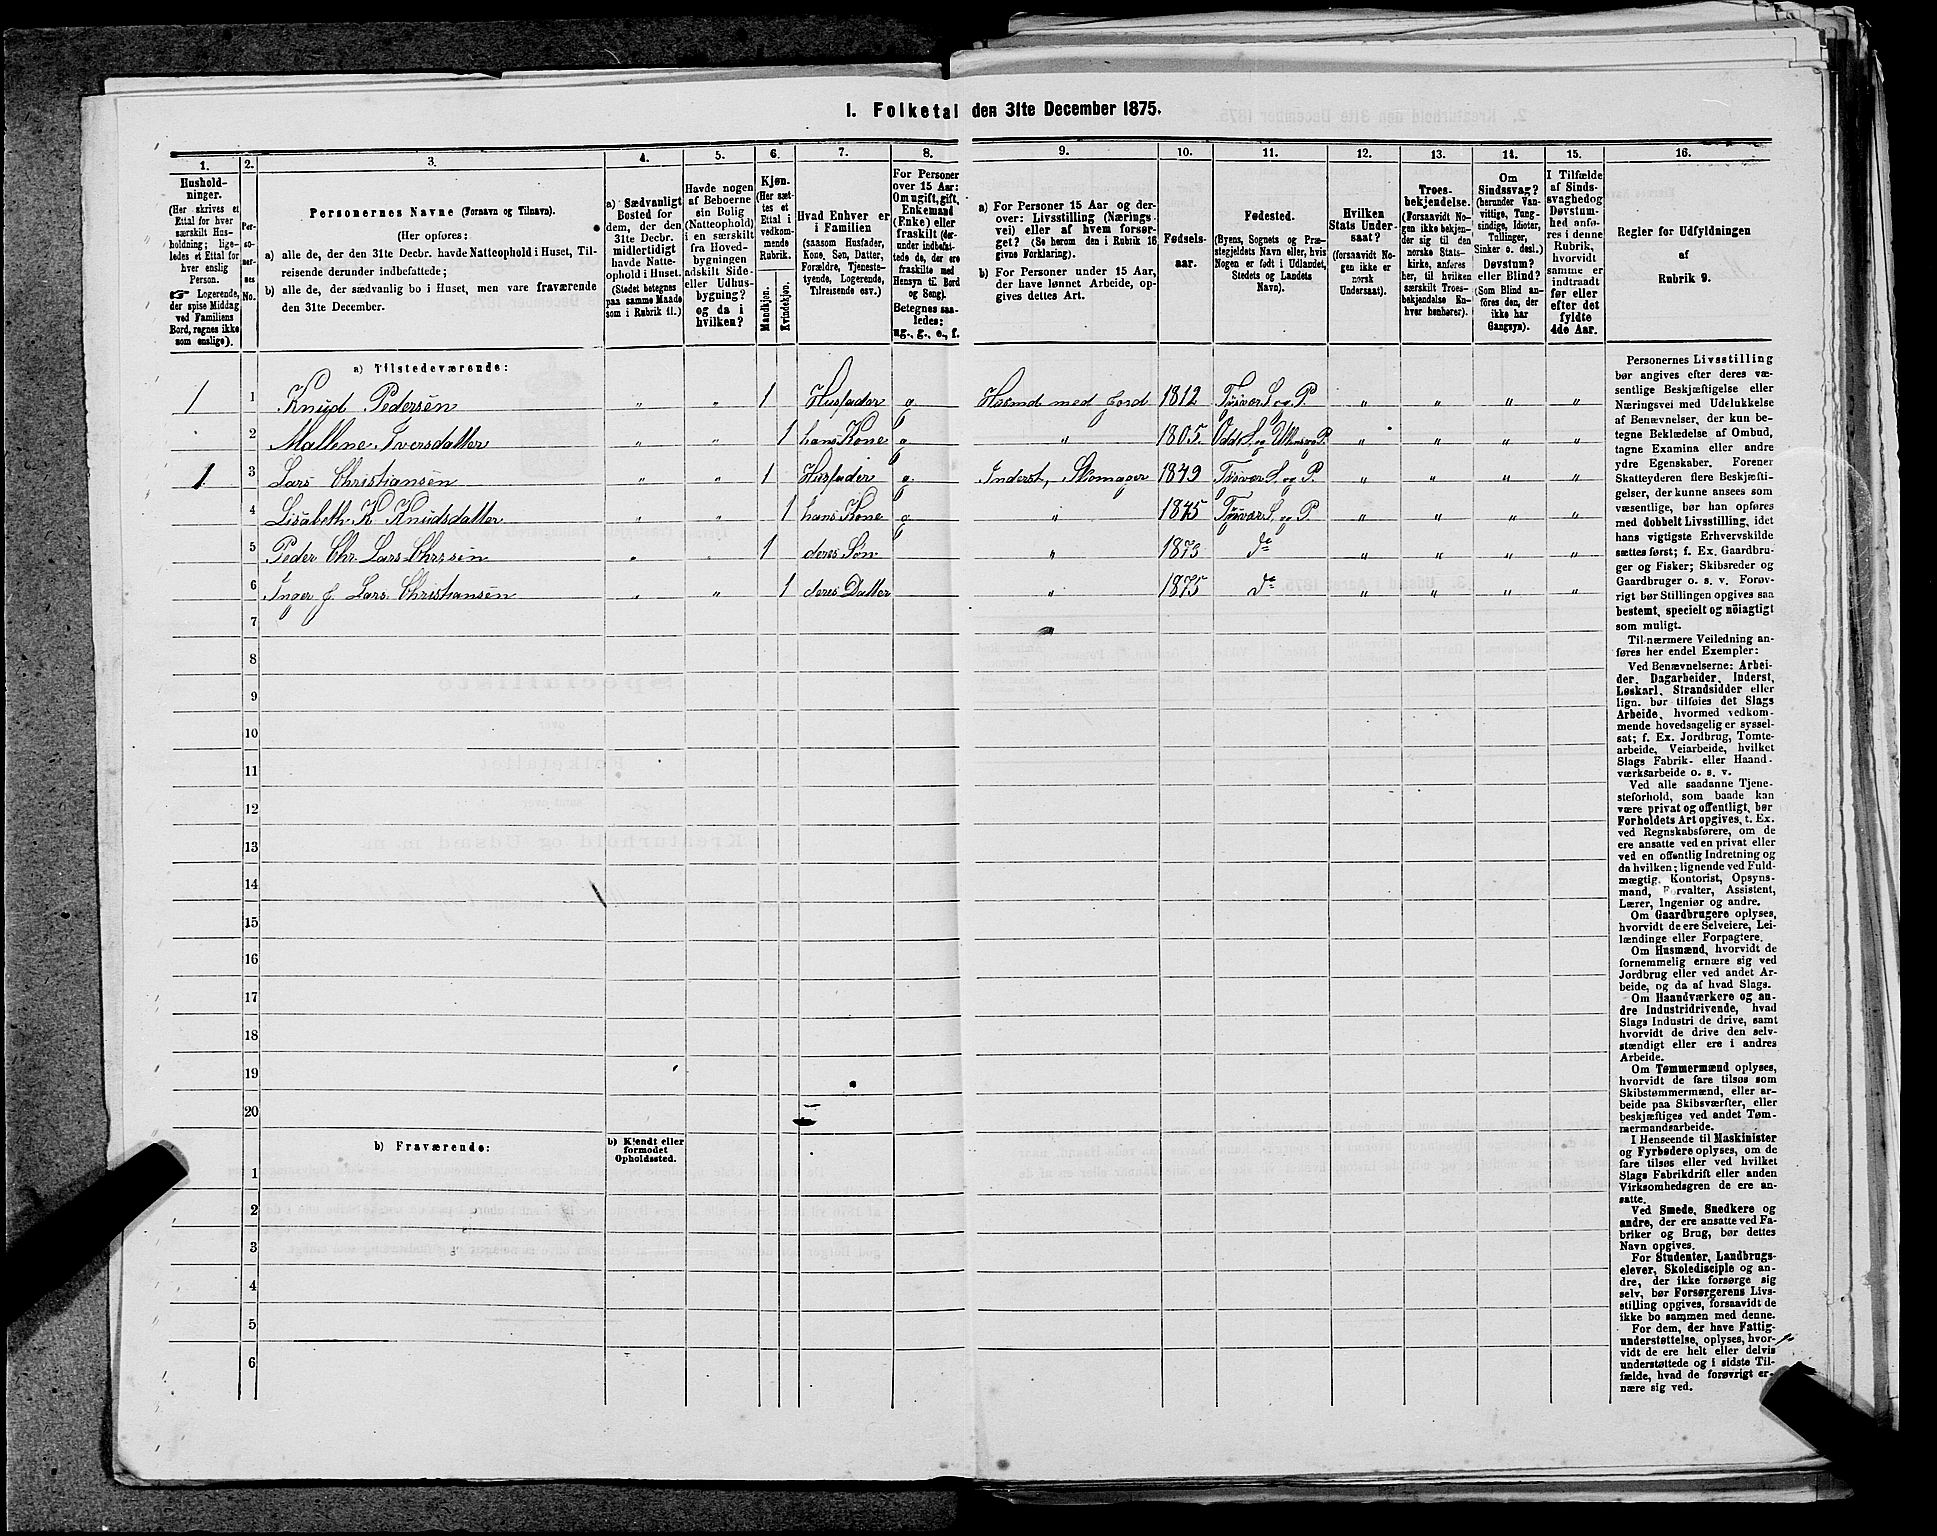 I. Folketal den 31te December 1875.
1. 2. 3. 4. 5. 6. 7. 8. 9. 10. 11. 12. 13. 14. 15. 16.
Hushold-
ninger.
(Her skrives et
Ettal for hver
særskilt Hus-
holdning; lige-
ledes et Ettal for
hver enslig
Person.
☞ Logerende,
der spise Middag
ved Familiens
Bord, regnes ikke
som enslige).
Per-
so-
ner-
nes
No.
Personernes Navne (Fornavn og Tilnavn).
(Her opføres:
a) alle de, der den 31te Decbr. havde Natteophold i Huset, Til-
reisende derunder indbefattede;
b) alle de, der sædvanlig bo i Huset, men vare fraværende
den 31te December.
a) Sædvanligt
Bosted for
dem, der den
31te Decbr.
midlertidigt
havde Natte-
ophold i Huset.
(Stedet betegnes
paa samme Maade
som i Rubrik 11.)
Havde nogen
af Beboerne
sin Bolig
(Natteophold)
i en særskilt
fra Hoved-
bygningen
adskilt Side-
eller Udhus-
bygning?
og da i
hvilken?
Kjøn.
(Her sæt-
tes et
Ettal i
vedkom-
mende
Rubrik.
Mandkjøn.
Kvindekjøn.
Hvad Enhver er
i Familien
(saasom Husfader,
Kone, Søn, Datter,
Forældre, Tjeneste-
tyende, Logerende,
Tilreisende osv.)
For Personer
over 15 Aar:
Om ugift, gift,
Enkemand
(Enke) eller
fraskilt (der-
under indbefat-
tede de, der ere
fraskilte med
Hensyn til Bord
og Seng).
Betegnes saa-
ledes:
ug., g., e., f.
a) For Personer 15 Aar og der-
over: Livsstilling (Nærings-
vei) eller af hvem forsør-
get? (Se herom den i Rubrik 16
givne Forklaring).
b) For Personer under 15 Aar,
der have lønnet Arbeide, op-
gives dettes Art.
Fødsels-
aar.
Fødested.
(Byens, Sognets og Præ-
stegjeldets Navn eller, hvis
Nogen er født i Udlandet,
Stedets og Landets
Navn).
Hvilken
Stats Under-
saat?
(forsaavidt No-
gen ikke er
norsk
Undersaat).
Troes-
bekjendelse.
(Forsaavidt No-
gen ikke bekjen-
der sig til den
norske Stats-
kirke, anføres
her, til hvilken
særskilt Troes-
bekjendelse En-
hver henhører).
Om
Sindssvag?
(herunder Van-
vittige, Tung-
sindige, Idioter,
Tullinger,
Sinker o. desl.)
Døvstum?
eller Blind?
(Som Blind an-
føres den, der
ikke har
Gangsyn).
I Tilfælde
af Sinds-
svaghed og
Døvstum-
hed anfø-
res i denne
Rubrik,
hvorvidt
samme er
indtraadt
før eller
efter det
fyldte
4de Aar.
Regler for Udfyldningen
af
Rubrik 9.
a) Tilstedeværende:
1 1 Knud Pedersen „ „ 1 Husfader g Husmd med Jord 1812 Tysvær S. og P. „ „ „ „
2 Mallene Iversdatter „ „ 1 hans Kone g „ 1805 „ „ „ „
1 3 Lars Christiansen „ „ 1 Husfader g. Inderst, Skomager 1849 Tysvær S. og P. „ „ „ „
4 Lisabeth K. Knudsdatter „ „ 1 hans Kone g „ 1845 Tysvær S. og P. „ „ „ „
5 Peder Chr. Lars. Chrssen „ „ 1 deres Søn „ 1873 do „ „ „ „
6 Inger J. Lars. Christiansen „ „ 1 deres Datter „ 1875 do „ „ „ „
7
8
9
10
11
12
13
14
15
16
17
18
19
20
b) Fraværende:
b) Kjendt eller
formodet
Opholdssted.
1
2
3
4
5
6
Personernes Livsstilling
bør angives efter deres væ-
sentlige Beskjæftigelse eller
Næringsvei med Udelukkelse
af Benævnelser, der kun be-
tegne Beklædelse af Ombud,
tagne Examina eller andre
ydre Egenskaber. Forener
Skatteyderen flere Beskjæfti-
gelser, der kunne ansees som
væsentlige, bør han opføres
med dobbelt Livsstilling, idet
hans vigtigste Erhvervskilde
sættes først; f. Ex. Gaardbru-
ger og Fisker; Skibsreder og
Gaardbruger o. s. v. Forøv-
rigt bør Stillingen opgives saa
bestemt, specielt og nöiagtigt
som muligt.
Til nærmere Veiledning an-
føres her endel Exempler:
Ved Benævnelserne: Arbei-
der, Dagarbeider, Inderst,
Løskarl, Strandsidder eller
lign. bør tilføies det Slags
Arbeide, hvormed vedkom-
mende hovedsagelig er syssel-
sat; f. Ex. Jordbrug, Tomte-
arbeide, Veiarbeide, hvilket
Slags Fabrik- eller Haand-
værksarbeide o. s. v.
Ved alle saadanne Tjene-
steforhold, som baade kan
være privat og offentligt, bør
Forholdets Art opgives, t. Ex.
ved Regnskabsførere, om de
ere ansatte ved en privat eller
ved en offentlig Indretning og
da hvilken; lignende ved Fuld-
mægtig, Kontorist, Opsyns-
mand, Forvalter, Assistent,
Lærer, Ingeniør og andre.
Om Gaardbrugere oplyses,
hvorvidt de ere Selveiere, Lei-
lændinge eller Forpagtere.
Om Husmænd, hvorvidt de
fornemmelig ernære sig ved
Jordbrug eller ved andet Ar-
beide, og da af hvad Slags.
Om Haandværkere og an-
dre Industridrivende, hvad
Slags Industri de drive, samt
hvorvidt de drive den selv-
stændigt eller ere i andres
Arbeide.
Om Tømmermænd oplyses,
hvorvidt de fare tilsøs som
Skibstømmermænd, eller ar-
beide paa Skibsværfter, eller
beskjæftiges ved andet Tøm-
mermandsarbeide.
I Henseende til Maskinister
og Fyrbødere oplyses, om de
fare tilsøs eller ved hvilket
Slags Fabrikdrift eller anden
Virksomhedsgren de ere an-
satte.
Ved Smede, Snedkere og
andre, der ere ansatte ved Fa-
briker og Brug, bør dettes
Navn opgives.
For Studenter, Landbrugs-
elever, Skoledisciple og an-
dre, der ikke forsørge sig
selv, bør Forsørgerens Livs-
stilling opgives, forsaavidt de
ikke bo sammen med denne.
For dem, der have Fattig-
understøttelse, oplyses, hvor-
vidt de ere helt eller delvis
understøttede og i sidste Til-
fælde, hvad de forøvrigt er-
nære sig ved.